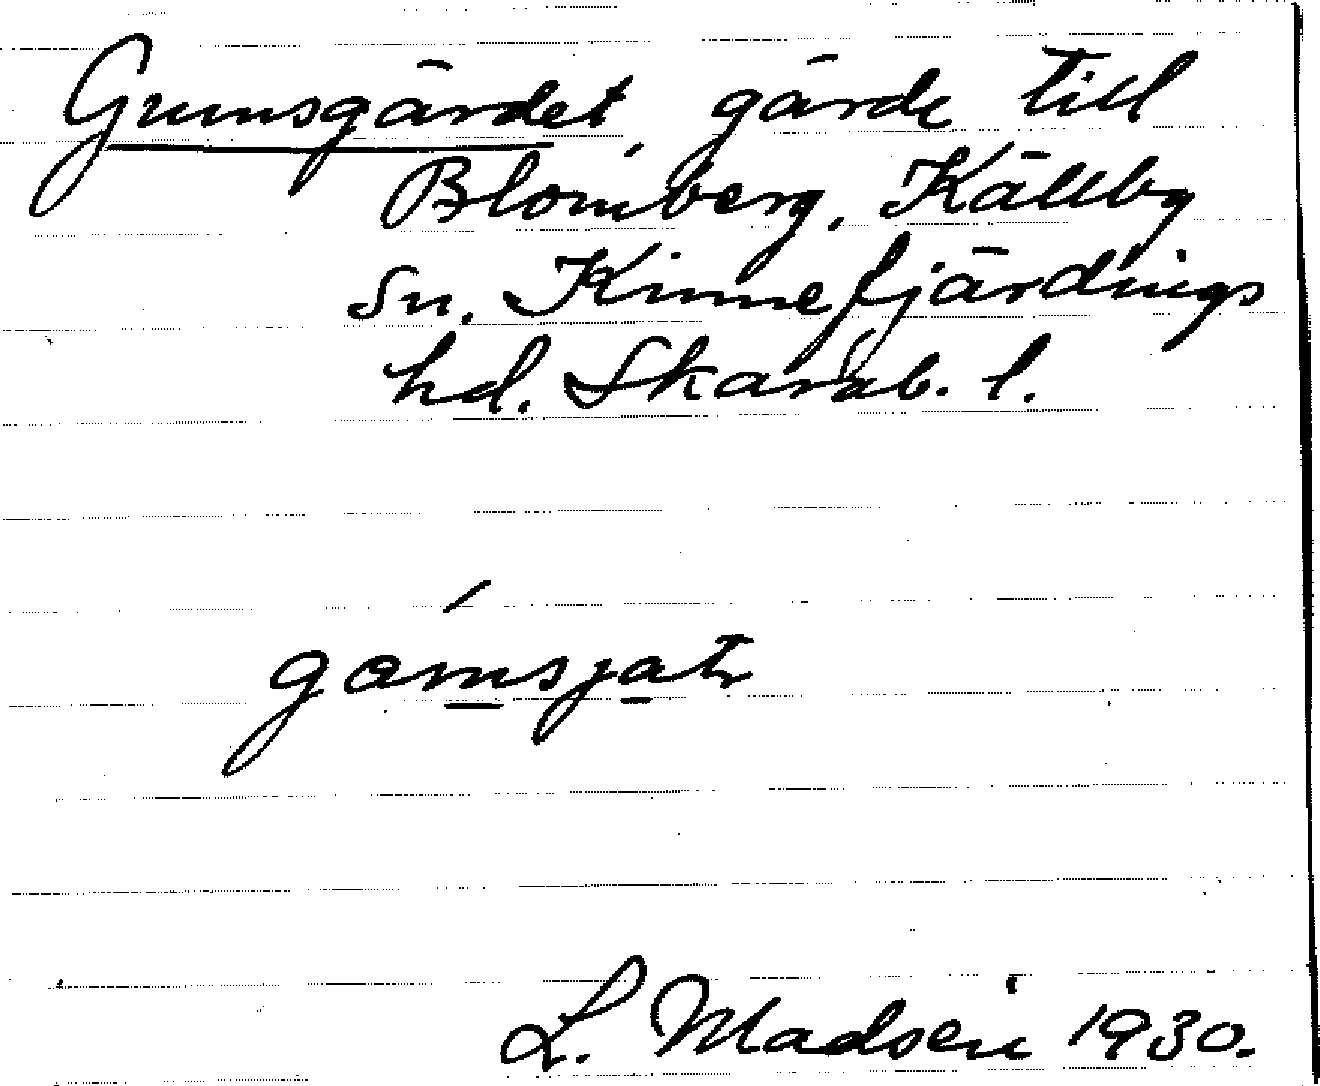 Gumsgärdet, gärde till
Blomberg, Källby
sn. Kinnefjärdings
hd. Skarab. l.
L. Madsen 1930.